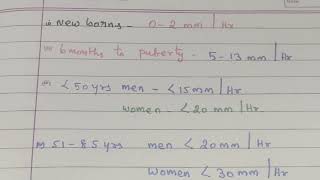 i) new borns - 0-2 mm | Hr
ii) 6 months to puberty - 5-13 mm | Hr
iii) < 50 yrs men - < 15 mm | Hr
women - < 20 mm | Hr
iv) 51 - 85 yrs men < 20 mm | Hr
Women < 30 mm | Hr